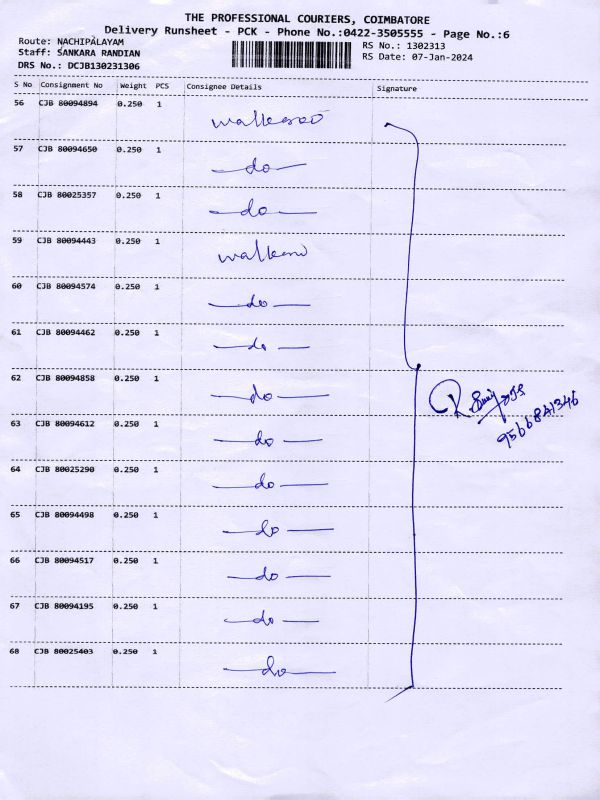 THE PROFESSIONAL COURIERS, COIMBATORE
Delivery Runsheet - PCK - Phone No.:0422-3505555 - Page No.:6
Route: NACHIPALAYAM
RS No.: 1302313
Staff: SANKARA RANDIAN
RS Date: 07-Jan-2024
DRS No.: DCJB130231306
S No Consignment No Weight PCS Consignee Details Signature
56 CJB 80094894 0.250 1
57 CJB 80094650 0.250 1 -do-
58 CJB 80025357 0.250 1 -do-
59 CJB 80094443 0.250 1
60 CJB 80094574 0.250 1 -do-
61 CJB 80094462 0.250 1 -do-
62 CJB 80094858 0.250 1 -do-
63 CJB 80094612 0.250 1 -do-
9566841346
64 CJB 80025290 0.250 1 -do-
65 CJB 80094498 0.250 1 -do-
66 CJB 80094517 0.250 1 -do-
67 CJB 80094195 0.250 1 -do-
68 CJB 80025403 0.250 1 -do-